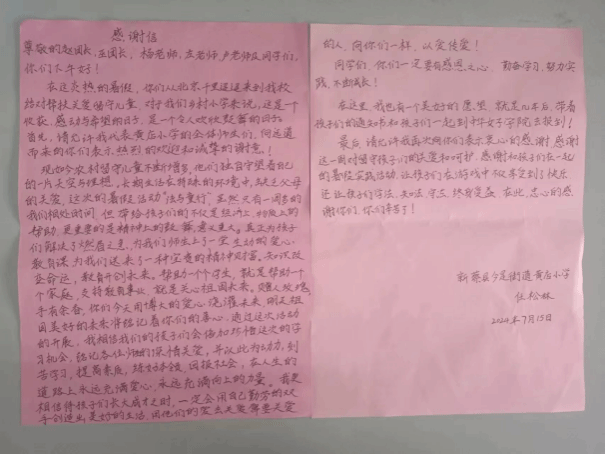 感谢信
尊敬的赵团长，巫团长，杨老师，左老师，卢老师及同学们，
你们下午好！
在这炎热的暑假，你们从北京千里迢迢来到我校
结对帮扶关爱留守儿童，对于我们乡村小学来说，这是一个
收获、感动与希望的日子，是一个令人欢欣鼓舞的日子。
首先，请允许我代表黄店小学的全体师生们，向远道
而来的你们表示热烈的欢迎和诚挚的谢意。
现如今农村留守儿童不断增多，他们独自守望着自己
的一片天空与理想，长期生活在特殊的环境中，缺乏父母
的关爱，这次的暑假活动“法与童行”，虽然只有一周多的
我们相处时间，但带给孩子们的不仅是经济上、物质上的
帮助，更重要的是精神上的鼓舞，意义重大。真正为孩子
们解决了燃眉之急，为我们师生上了一堂生动的爱心
教育课，为我们送来了一种宝贵的精神财富。知识改
变命运，教育开创未来。帮助一个学生，就是帮助一个
个家庭，支持教育事业，就是关心祖国未来。赠人玫瑰，
手有余香，你们今天用博大的爱心，浇灌未来，明天祖
国美好的未来将铭记着你们的善心，通过这次活动
的开展，我相信我们的孩子们会倍加珍惜这次的学
习机会，铭记各位师的深情关爱，并以此为动力，刻
苦学习，提高素质，练好本领，回报社会，在人生的
道路上永远充满爱心，永远充满向上的力量。我更
相信待孩子们长大成才之时，一定会用自己勤劳的双
手创造出美好的生活，用他们的爱去关爱需要关爱
的人，向你们一样，以爱传爱！
同学们，你们一定要有感恩之心，勤奋学习，努力实
践，不断成长！
在这里，我也有一个美好的愿望，就是几年后，带着
孩子们的通知书和孩子们一起到中华女子学院去报到！
最后，请允许我再次向你们表示衷心的感谢，感谢
这一周对留守孩子们的关爱和呵护，感谢和孩子们在一起
的暑假实践活动，让孩子们在游戏中不仅享受到了快乐
还让孩子们学法、知法、守法，终身受益，在此，忠心的感
谢你们，你们辛苦了！
街道黄店小学
任松林
2024年7月15日